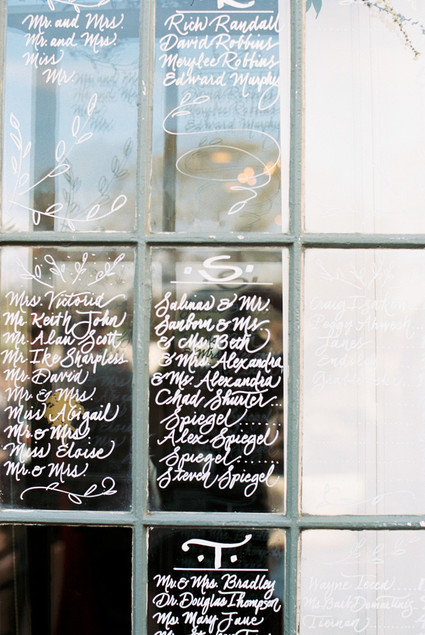 Mr. and Mrs.
Mr. and Mrs.
Miss
Mr.
R
Rich Randall
David Robbins
Merylee Robbins
Edward Murphy
Mrs. Victoria
Mr. Keith John
Mr. Alan Scott
Mr. Ike Sharpless
Mr. David
Mr. & Mrs.
Miss Abigail
Mr. & Mrs.
Miss Eloise
Mr. & Mrs.
.S.
Salinas & Mr.
Sanborn & Ms.
& Ms. Beth
& Mrs. Alexandra
& Ms. Alexandra
Chad Shurter...
Spiegel.......
Alex Spiegel
Spiegel.....
Steven Spiegel
.T.
Mr. & Mrs. Bradley
Dr. Douglas Thompson
Ms. Mary Jane
Craig
James
Wayne
Tiernan